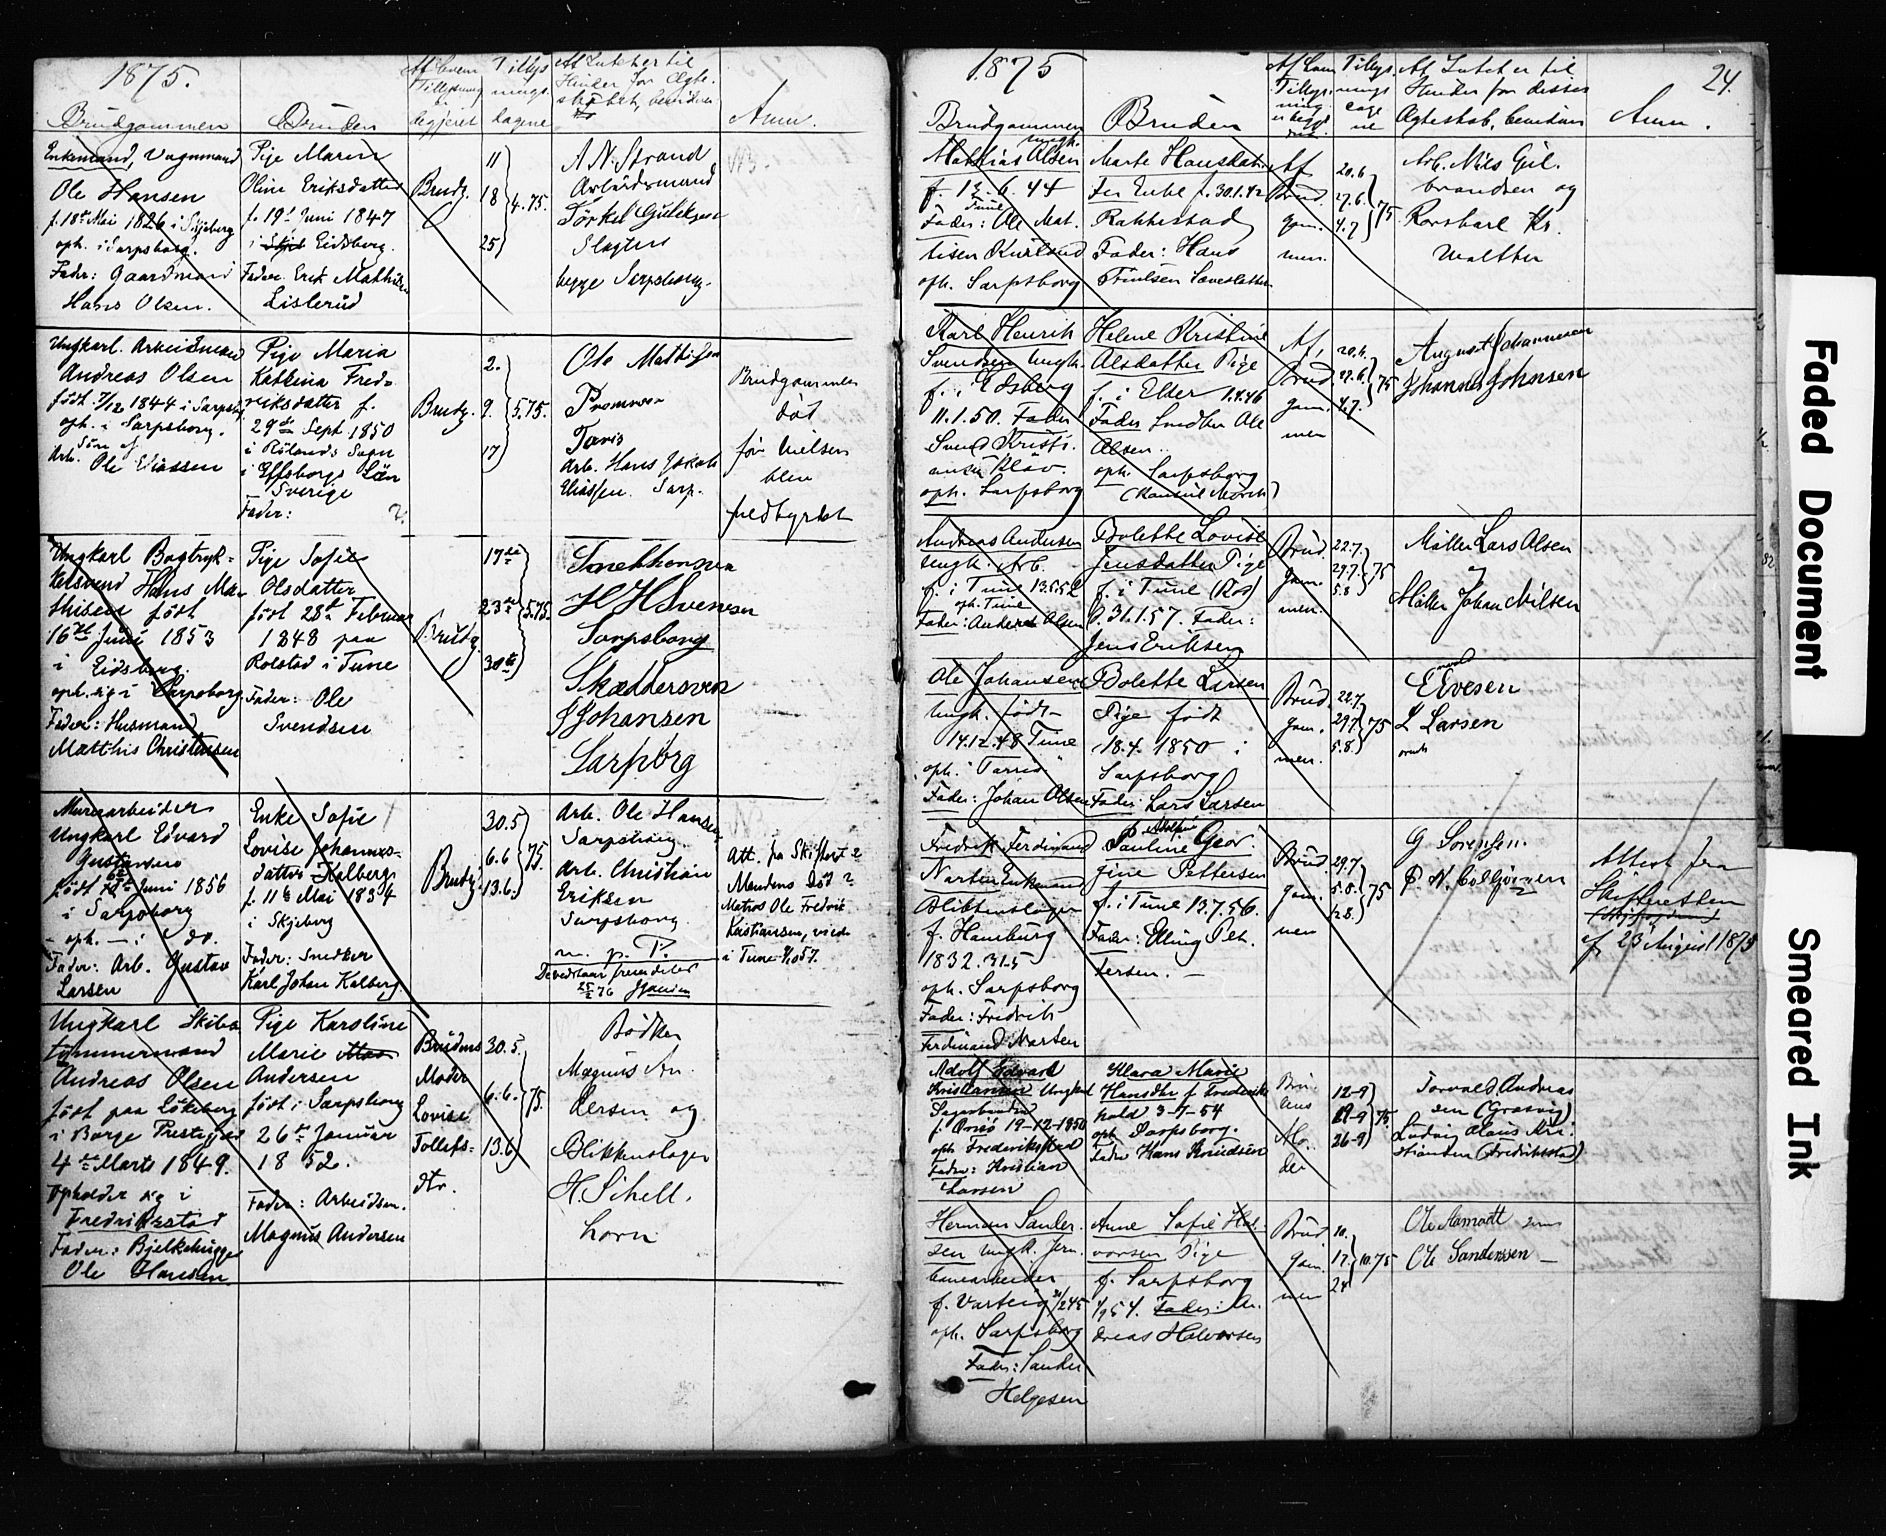 1875.
Brudgommen
Bruden
Af hvem
Tillysning
er
begjæret
Tillys
nings
dagene
At Intet er til
Hinder for Ægte-
skabet, bevidner
Anm.
Enkemand, Vognmand
Ole Hansen
f. 18de Mai 1826 i Skjeberg
oph. i Sarpsborg.
Fader: Gaardmand
Hans Olsen.
Pige Maren
Oline Eriksdatter
f. 19de Juni 1847
i Eidsberg.
Fader: Erik Mathisen
Listerud
Brudg.
11
18
25
4.75.
A N. Strand
Arbeidsmand
Slagter
begge Sarpsborg.
Ungkarl. Arbeidsmand
Andreas Olsen
født 7/12 1844 i Sarpsbg
oph. i Sarpsborg.
Søn af
Arb. Ole Eliassen
Pige Maria
Kathrina Fred-
riksdatter f.
29de Sept. 1850
i Rölanda Sogn
i Elfsborgs Län
Sverige
Fader: ?
Brudg.
2.
9.
17
5.75.
Ole Mathisen
Arb. Hans Jakob
Eliassen. Sarp.
Brudgommen
død
før vielsen
blev
fuldbyrdet
Ungkarl Bogtryk-
kersvend Hans Ma-
thisen født
16de Juni 1853
i Eidsberg.
oph. sig i Sarpsborg
Fader: Husmand
Matthis Christensen
Pige Sofie
Olsdatter
født 28de Februar
1848 paa
Rolstad i Tune
Fader: Ole
Svendsen
Brudg.
17de
23de
30te
5.75.
H H Svensen
Sarpsborg
Skæddersven
J Johansen
Sarpborg
Murerarbeider
Ungkarl Edvard
Gustavsen
født Juni 1856
i Sarpsborg
- oph. - i do.
Fader: Arb. Gustav
Larsen
Enke Sofie
Lovise Johannes-
datter Kalberg
f. 11te Mai 1834
i Skjeberg
Fader: Snedker
Karl Johan Kalberg.
Brudg.
30.5
6.6
13.6.
75.
Arb. Ole Hansen
Sarpsborg.
Arb. Christian
Eriksen
Sarpsborg.
m. p. P.
Att. fra Skifteret?
Mandens Død?
Matros Ole Fredrik
Kristiansen, viede
i Tune
Ungkarl Skibs
tømmermand
Andreas Olsen
født paa Løkeberg
i Borge Prestegjeld
4de Marts 1849.
opholder sig i
Fredrikstad
Fader: Bjelkehugger
Ole Hansen
Pige Karoline
Marie
Andersen
født i Sarpsborg
26de Januar
1852.
Fader: Arbeidsm.
Magnus Andersen
Brudens
Moder
Lovise
Tollefs-
dtr.
30.5.
6.6.
13.6
75.
Bødker
Magnus An-
dersen og
Blikkenslager
H. Schell.
horn
1875
24.
Brudgommen
Bruden
Af hvem
Tillys-
ning
er begjæ
ret
Tillys-
nings
dage
ne
At Intet er til
Hinder for dettes
Ægteskab, bevidner
Anm.
ungk.
Mathias Olsen
f. 12.6.44
Tune
Fader: Ole Mat-
tisen Kurland
oph. Sarpsborg
Marte Hansdat.
ter Enke f. 30.1.42
Rakkestad
Fader: Hans
Af
Brud
gom.
men.
20.6
27.6.
4.7
75
Arb. Nils Gul-
brandsen og
Walther
Karl Henrik
Svendsen Ungk.
f. i Edsberg
11.1.50. Fader
Svend Kristi-
ansen Klav.
oph. Sarpsborg
Helene Kristine
Olsdatter Pige
f. i Elder 1.4.46
Fader Smedker Ole
Olsen.
oph. Sarpsborg
Af
Brud
gom.
men
20.6.
27.6.
4.7.
75
August Johannesen
Johannes Johnsen
Andreas Andersen
Ungk. Arb.
f. i Tune 13.5.52
oph. Tune
Fader: Anders Olsen
Bolette Lovise
Jensdatter Pige
f. i Tune
31.1.57. Fader:
Jens Eriksen
Brud
gom.
men.
22.7.
29.7.
5.8
75
Møller Lars Olsen
Møller Johan Nilsen
Ole Johansen
Ungk. født
14.12.48 Tune
oph. "Tarris"
Fader: Johan Olsen
Bolette Larsen
Pige født
18.4.1850 i
Sarpsborg
Fader: Lars Larsen
Brud
gom.
men.
22.7.
29.7
5.8.
75
L Larsen
Fredrik Ferdinand
Narten Enkemand
Blikkenslager
f. Hamburg
1832. 31.5
oph. Sarpsborg
Fader: Fredrik
Ferdinand Narten
Pauline Geor-
gine Pettersen
f. i Tune 13.7.56.
Fader: Elling Pet-
tersen. -
Brud
gom.
men
29.7
5.8.
12.8.
75
G Sørensen.
Attest fra
Skifteretten
af 23 August 1875
Adolf Edvard
Kristiansen Ungkarl
Sagarbeider
f. Onsø 19-12-1850
oph Frederiksstad
Fader: Kristian
Larsen
Klara Marie
Hansdtr f Frederiks-
hald 3-7-54
oph Sarpsborg.
Fader Hans Knudsen
Bru-
dens
Mo-
der
12-9
19-9
26-9
75.
Torvald Andreas
sen (Græsvig)
Ludvig Olaus Kri-
stiansen (Fredrikstad)
Herman Sander-
sen Ungk. Jern-
banearbeider
f. Varteig
oph. Sarpsborg
Fader: Sander
Helgesen
Anne Sofie Hal-
vorsen Pige
f. Sarpsborg
1/9 54. Fader: An-
dreas Halvorsen
Brud
gom.
men
10.
17.
24
10.75
Ole Aamodt
Ole Sanderssen
Faded Document
Smeared Ink